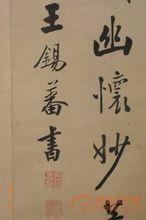 幽懷妙
王錫蕃書